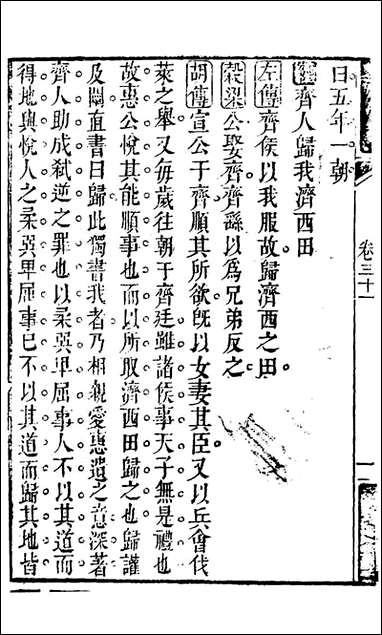 曰五年一朝
經齊人歸我濟西田
左傳齊侯以我服故歸濟西之田
穀梁公娶齊齊繇以爲兄弟反之
胡傳宣公于齊順其所欲旣以女妻其臣又以兵會伐
萊之舉又每歲往朝于齊廷雖諸侯事天子無是禮也
故惠公悅其能順事也而以所取濟西田歸之也歸讙
及闡直書曰歸此獨書我者乃相親愛惠遺之意深著
齊人助成弑逆之罪也以柔巽卑屈事人不以其道而
得地與悅人之柔巽卑屈事已不以其道而歸其地皆
卷三十一